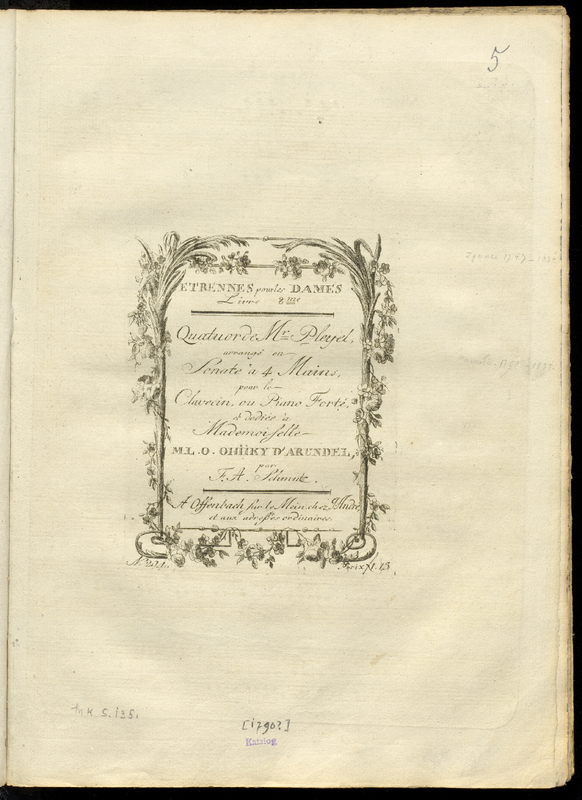 5
ETRENNES pour les DAMES
Livre 8me
Quatuor de Mr. Pleyel,
arrangé en
Sonate à 4 Mains,
pour le
Clavecin, ou Piano Forté,
& dediée à
Mademoiselle
M.L.O. OHIIKY D'ARUNDEL,
par
F. A. Schmitt.
A Offenbach sur le Mein chez J. André,
et aux adresses ordinaires.
No. 224.
Prix f 1. 13
[1790?]
Katalog